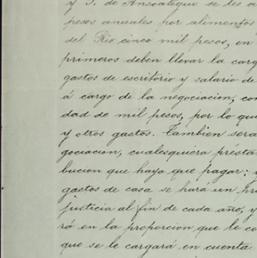 y J. de Ansoategui se les a
pesos anuales por alimentos
del Rio cinco mil pesos, en
primeros deben llevar la carg
gastos de escritorio y salario de
á cargo de la negociacion, con
dad de mil pesos, por lo qu
y otros gastos. Tambien sera
gociacion, cualesquiera présta
bucion que haya que pagar:
gastos de casa se hará un pr
justicia al fin de cada año, y
rá en la proporcion que le co
que se le cargará en cuenta